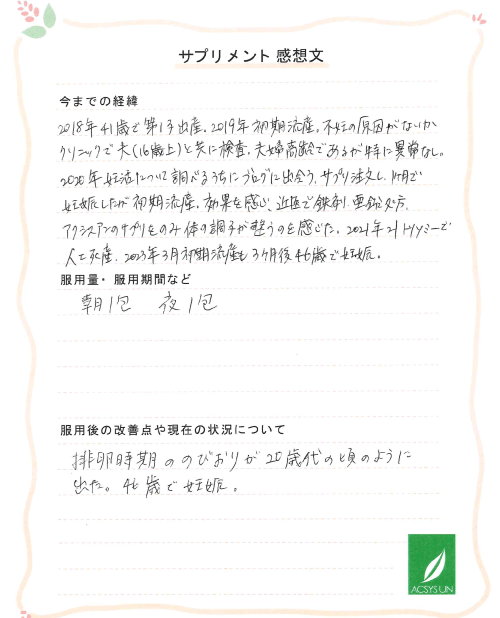 サプリメント 感想文
今までの経緯
2018年41歳で第1子出産。2019年初期流産。不妊の原因がないか
クリニックで夫(16歳上)と共に検査。夫婦高齢であるが特に異常なし。
2020年妊活について調べるうちにブログに出会う。サプリ注文し、1ヶ月で
妊娠したが初期流産。効果を感じ、近医で鉄剤、亜鉛処方、
アクシスアンのサプリをのみ体の調子が整うのを感じた。2021年21トリソミーで
人工死産。2023年3月初期流産も3ヶ月後46歳で妊娠。
服用量・服用期間など
朝1包 夜1包
服用後の改善点や現在の状況について
排卵時期ののびおりが20歳代の頃のように
出た。46歳で妊娠。
ACSYSUN